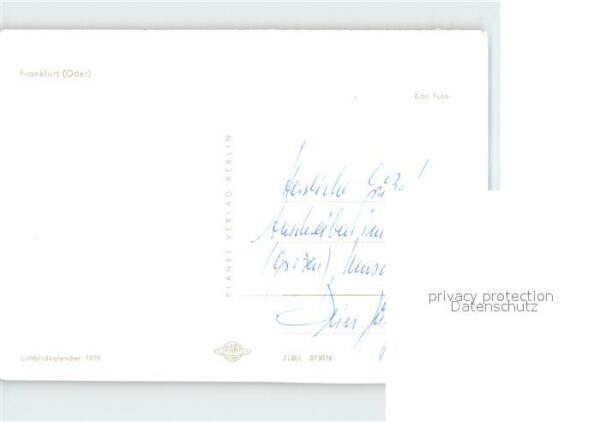 Frankfurt (Oder)
Echt Foto
PLANET VERLAG BERLIN
Herzliche Grüße!
(großen)
Dein
privacy protection
Datenschutz
Luftbildkalender 1979
ZLB/L 073078